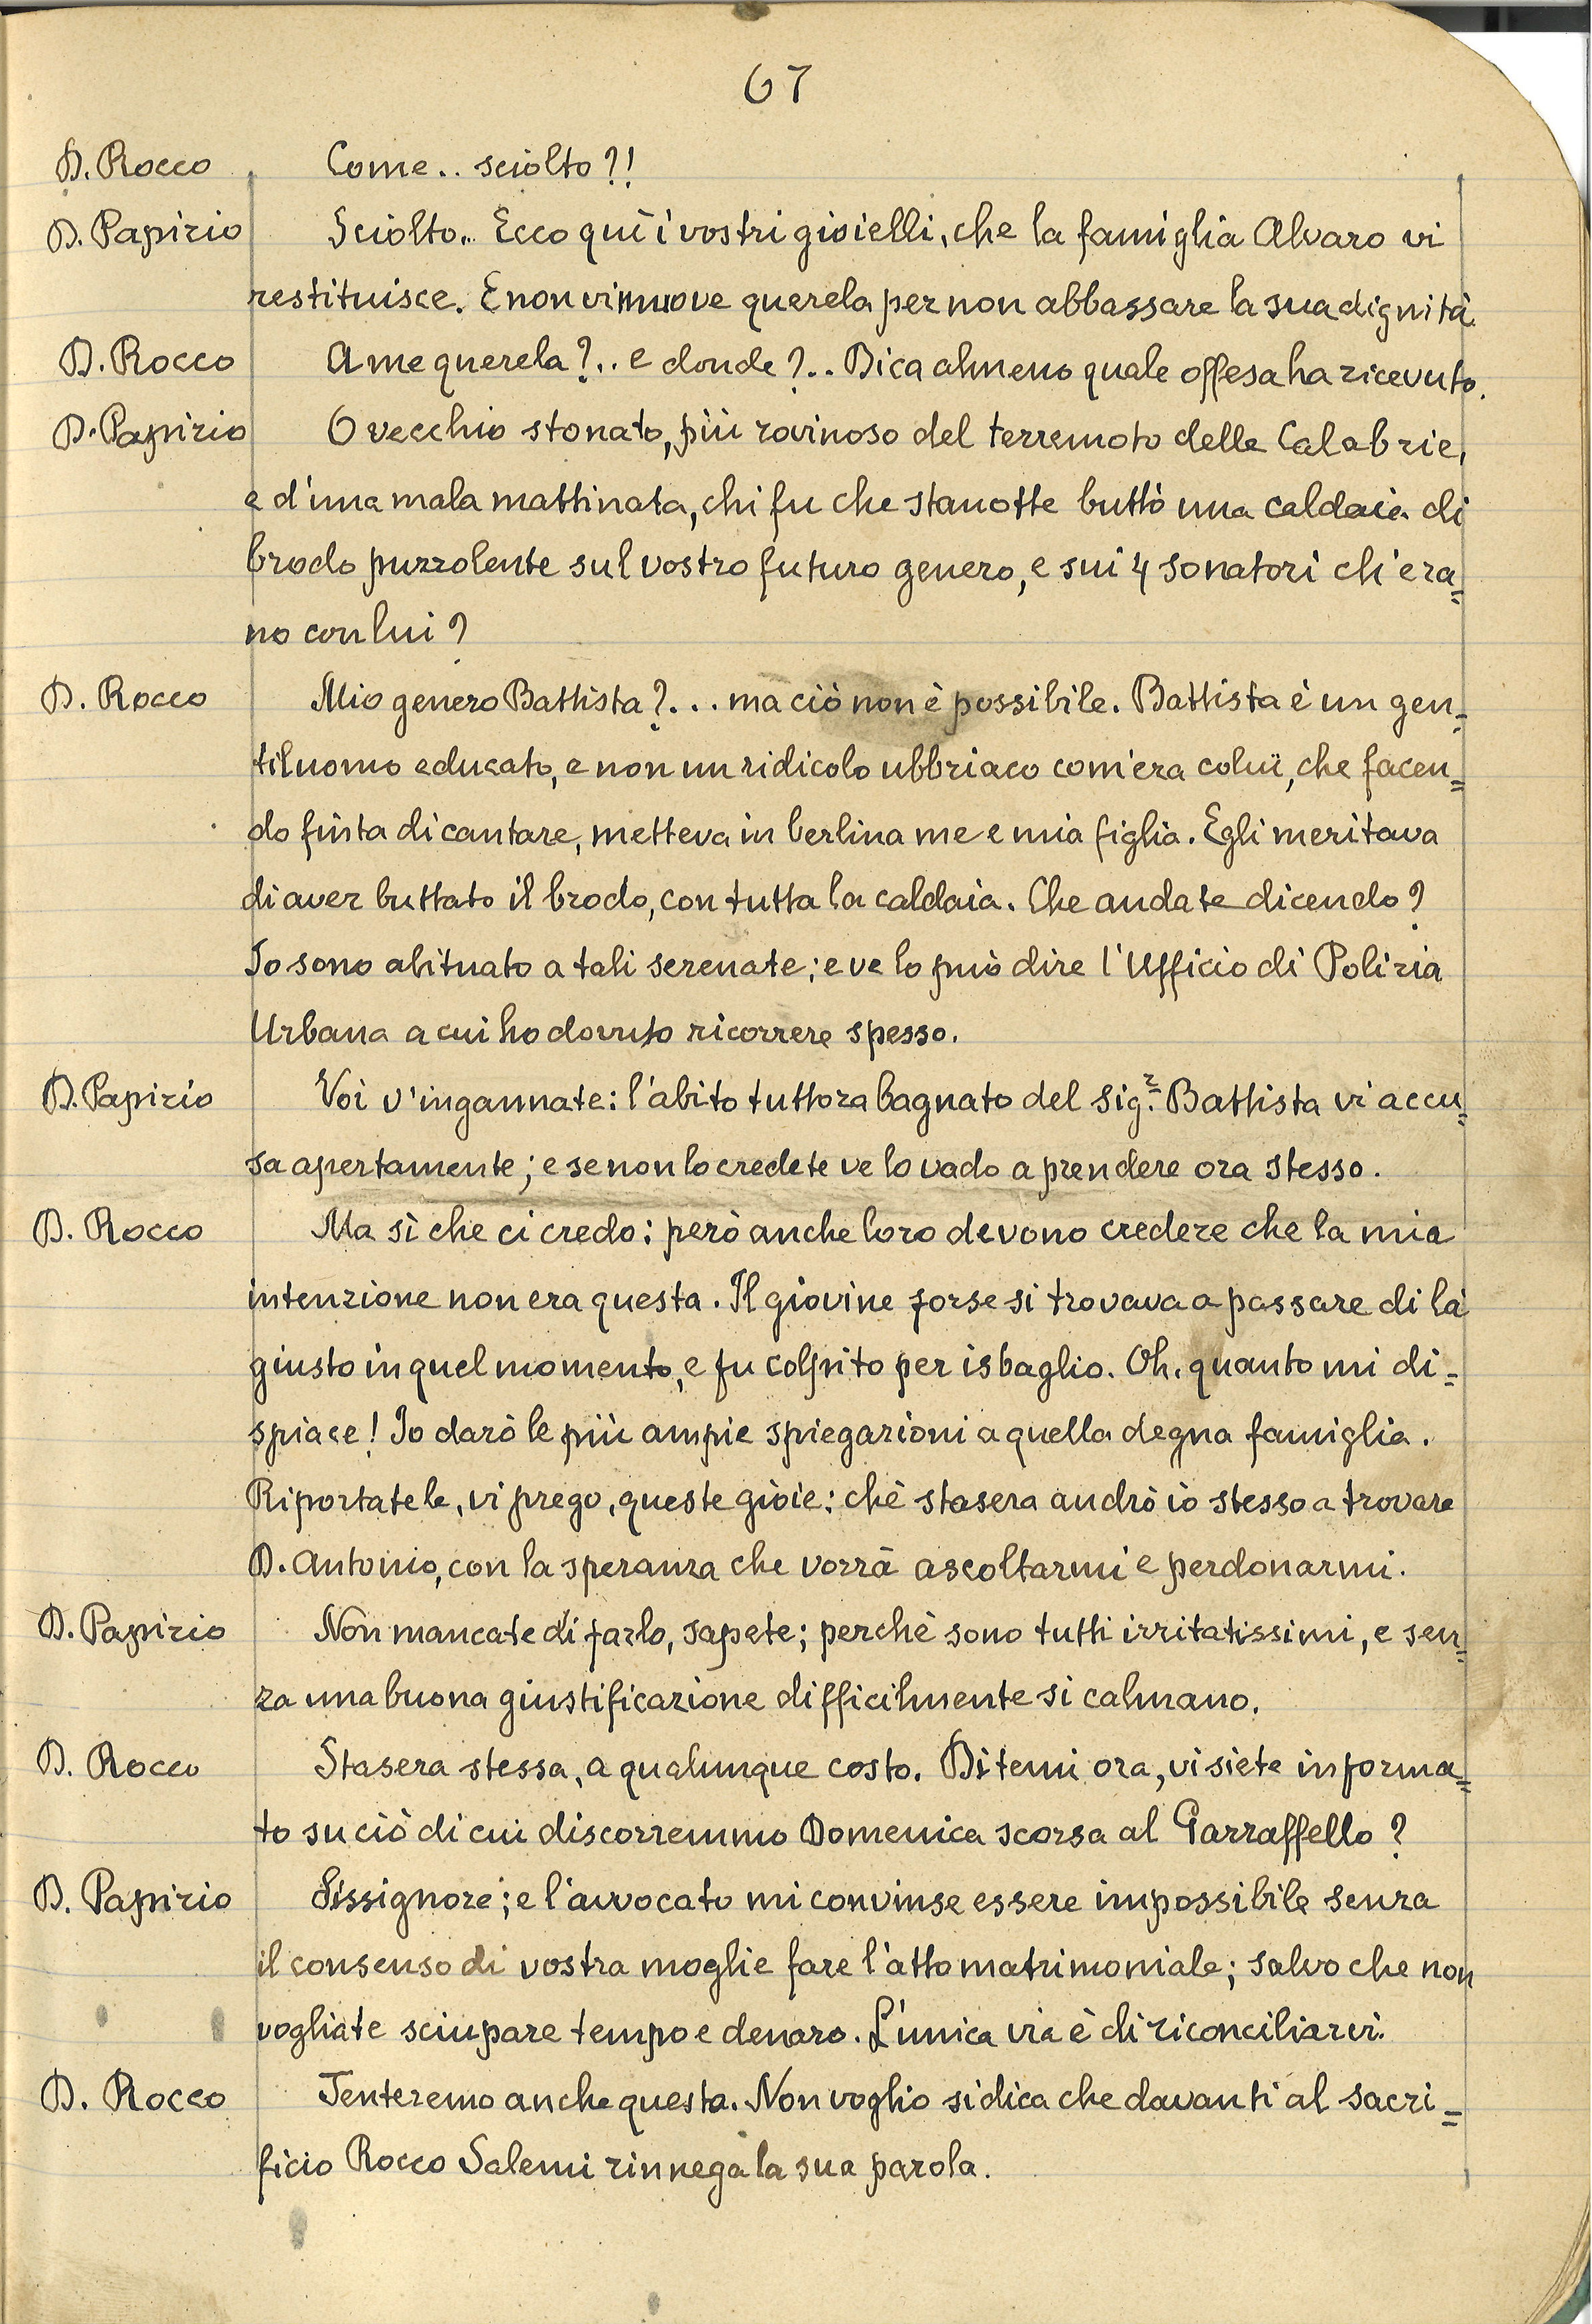 67
D. Rocco Come.. sciolto?!
D. Papirio Sciolto.. Ecco quì i vostri gioielli, che la famiglia Alvaro vi
restituisce. E non vi muove querela per non abbassare la sua dignità.
D. Rocco A me querela?.. e donde?.. Dica almeno quale offesa ha ricevuto.
D. Papirio O vecchio stonato, più rovinoso del terremoto delle Calabrie,
e d'una mala mattinata, chi fu che stanotte buttò una caldaia di
brodo puzzolente sul vostro futuro genero, e sui 4 sonatori ch'era=
no con lui?
D. Rocco Mio genero Battista?... ma ciò non è possibile. Battista è un gen=
tiluomo educato, e non un ridicolo ubbriaco com'era colui, che facen=
do finta di cantare, metteva in berlina me e mia figlia. Egli meritava
di aver buttato il brodo, con tutta la caldaia. Che andate dicendo?
Io sono abituato a tali serenate; e ve lo può dire l'Ufficio di Polizia
Urbana a cui ho dovuto ricorrere spesso.
D. Papirio Voi v'ingannate: l'abito tuttora bagnato del sig.r Battista vi accu=
sa apertamente; e se non lo credete ve lo vado a prendere ora stesso.
D. Rocco Ma sì che ci credo: però anche loro devono credere che la mia
intenzione non era questa. Il giovine forse si trovava a passare di là
giusto in quel momento, e fu colpito per isbaglio. Oh, quanto mi di=
spiace! Io darò le più ampie spiegazioni a quella degna famiglia.
Riportatele, vi prego, queste gioie: chè stasera andrò io stesso a trovare
D. Antonio, con la speranza che vorrà ascoltarmi e perdonarmi.
D. Papirio Non mancate di farlo, sapete; perchè sono tutti irritatissimi, e sen=
za una buona giustificazione difficilmente si calmano.
D. Rocco Stasera stessa, a qualunque costo. Ditemi ora, vi siete informa=
to su ciò di cui discorremmo Domenica scorsa al Garraffello?
D. Papirio Sissignore; e l'avvocato mi convinse essere impossibile senza
il consenso di vostra moglie fare l'atto matrimoniale; salvo che non
vogliate sciupare tempo e denaro. L'unica via è di riconciliarvi.
D. Rocco Tenteremo anche questa. Non voglio si dica che davanti al sacri=
ficio Rocco Salemi rinnega la sua parola.